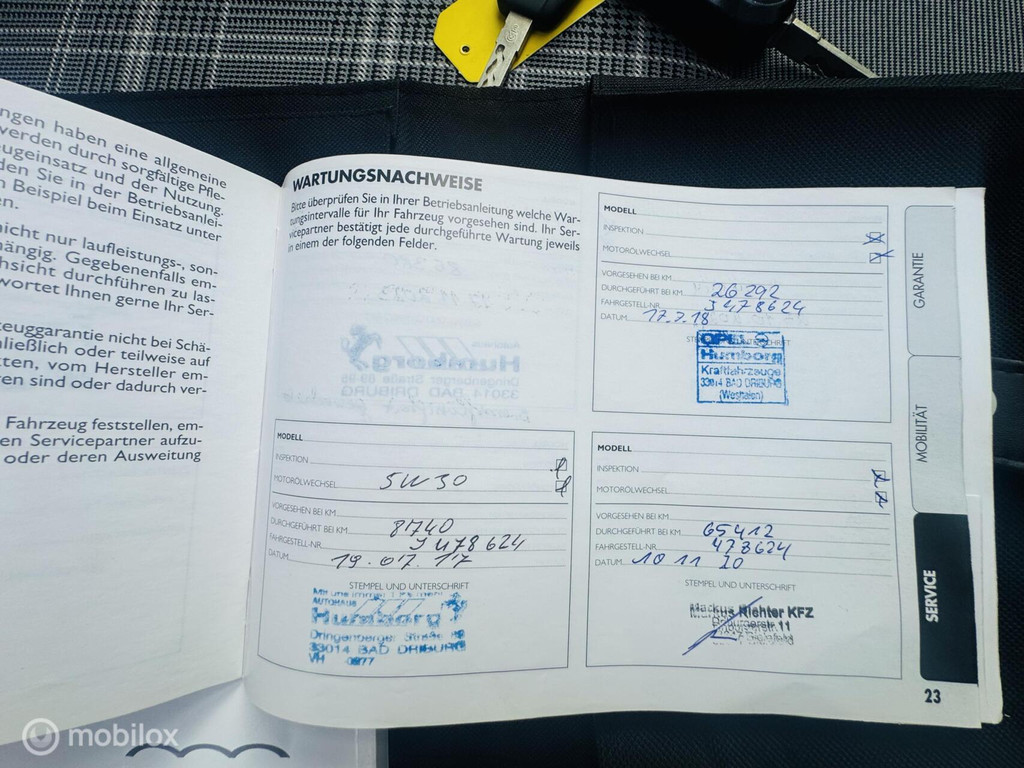 ngen haben eine allgemeine
werden durch sorgfältige Pfle-
eugeinsatz und der Nutzung.
den Sie in der Betriebsanlei-
n Beispiel beim Einsatz unter
en.
nicht nur laufleistungs-, son-
hängig. Gegebenenfalls em-
hsicht durchführen zu las-
wortet Ihnen gerne Ihr Ser-
zeuggarantie nicht bei Schä-
hließlich oder teilweise auf
tten, vom Hersteller em-
ren sind oder dadurch ver-
Fahrzeug feststellen, em-
en Servicepartner aufzu-
oder deren Ausweitung
WARTUNGSNACHWEISE
Bitte überprüfen Sie in Ihrer Betriebsanleitung welche War-
tungsintervalle für Ihr Fahrzeug vorgesehen sind. Ihr Ser-
vicepartner bestätigt jede durchgeführte Wartung jeweils
in einem der folgenden Felder.
MODELL
INSPEKTION
MOTORÖLWECHSEL
VORGESEHEN BEI KM
DURCHGEFÜHRT BEI KM 26292
FAHRGESTELL-NR. J478624
DATUM 17.7.18
OPEL
Humborg
Kraftfahrzeuge
33014 BAD DRIBURG
(Westfalen)
MODELL
INSPEKTION
MOTORÖLWECHSEL 5W30
VORGESEHEN BEI KM
DURCHGEFÜHRT BEI KM 8740
FAHRGESTELL-NR. J478624
DATUM 19.07.17
STEMPEL UND UNTERSCHRIFT
AUTOHAUS
Humborg
Dringenberger Straße
33014 BAD DRIBURG
VH 0977
MODELL
INSPEKTION
MOTORÖLWECHSEL
VORGESEHEN BEI KM
DURCHGEFÜHRT BEI KM 65412
FAHRGESTELL-NR. 478624
DATUM 10 11 20
STEMPEL UND UNTERSCHRIFT
Markus Richter KFZ
GARANTIE
MOBILITÄT
SERVICE
23
mobilox